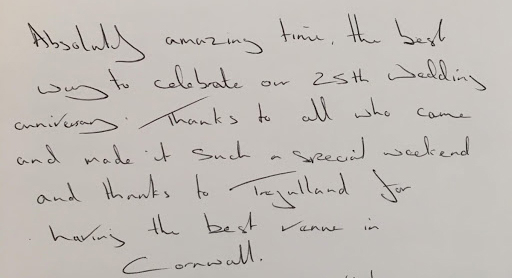 Absolutely amazing time, the best
way to celebrate our 25th wedding
anniversary. Thanks to all who came
and made it such a special weekend
and thanks to Tregulland for
having the best venue in
Cornwall.